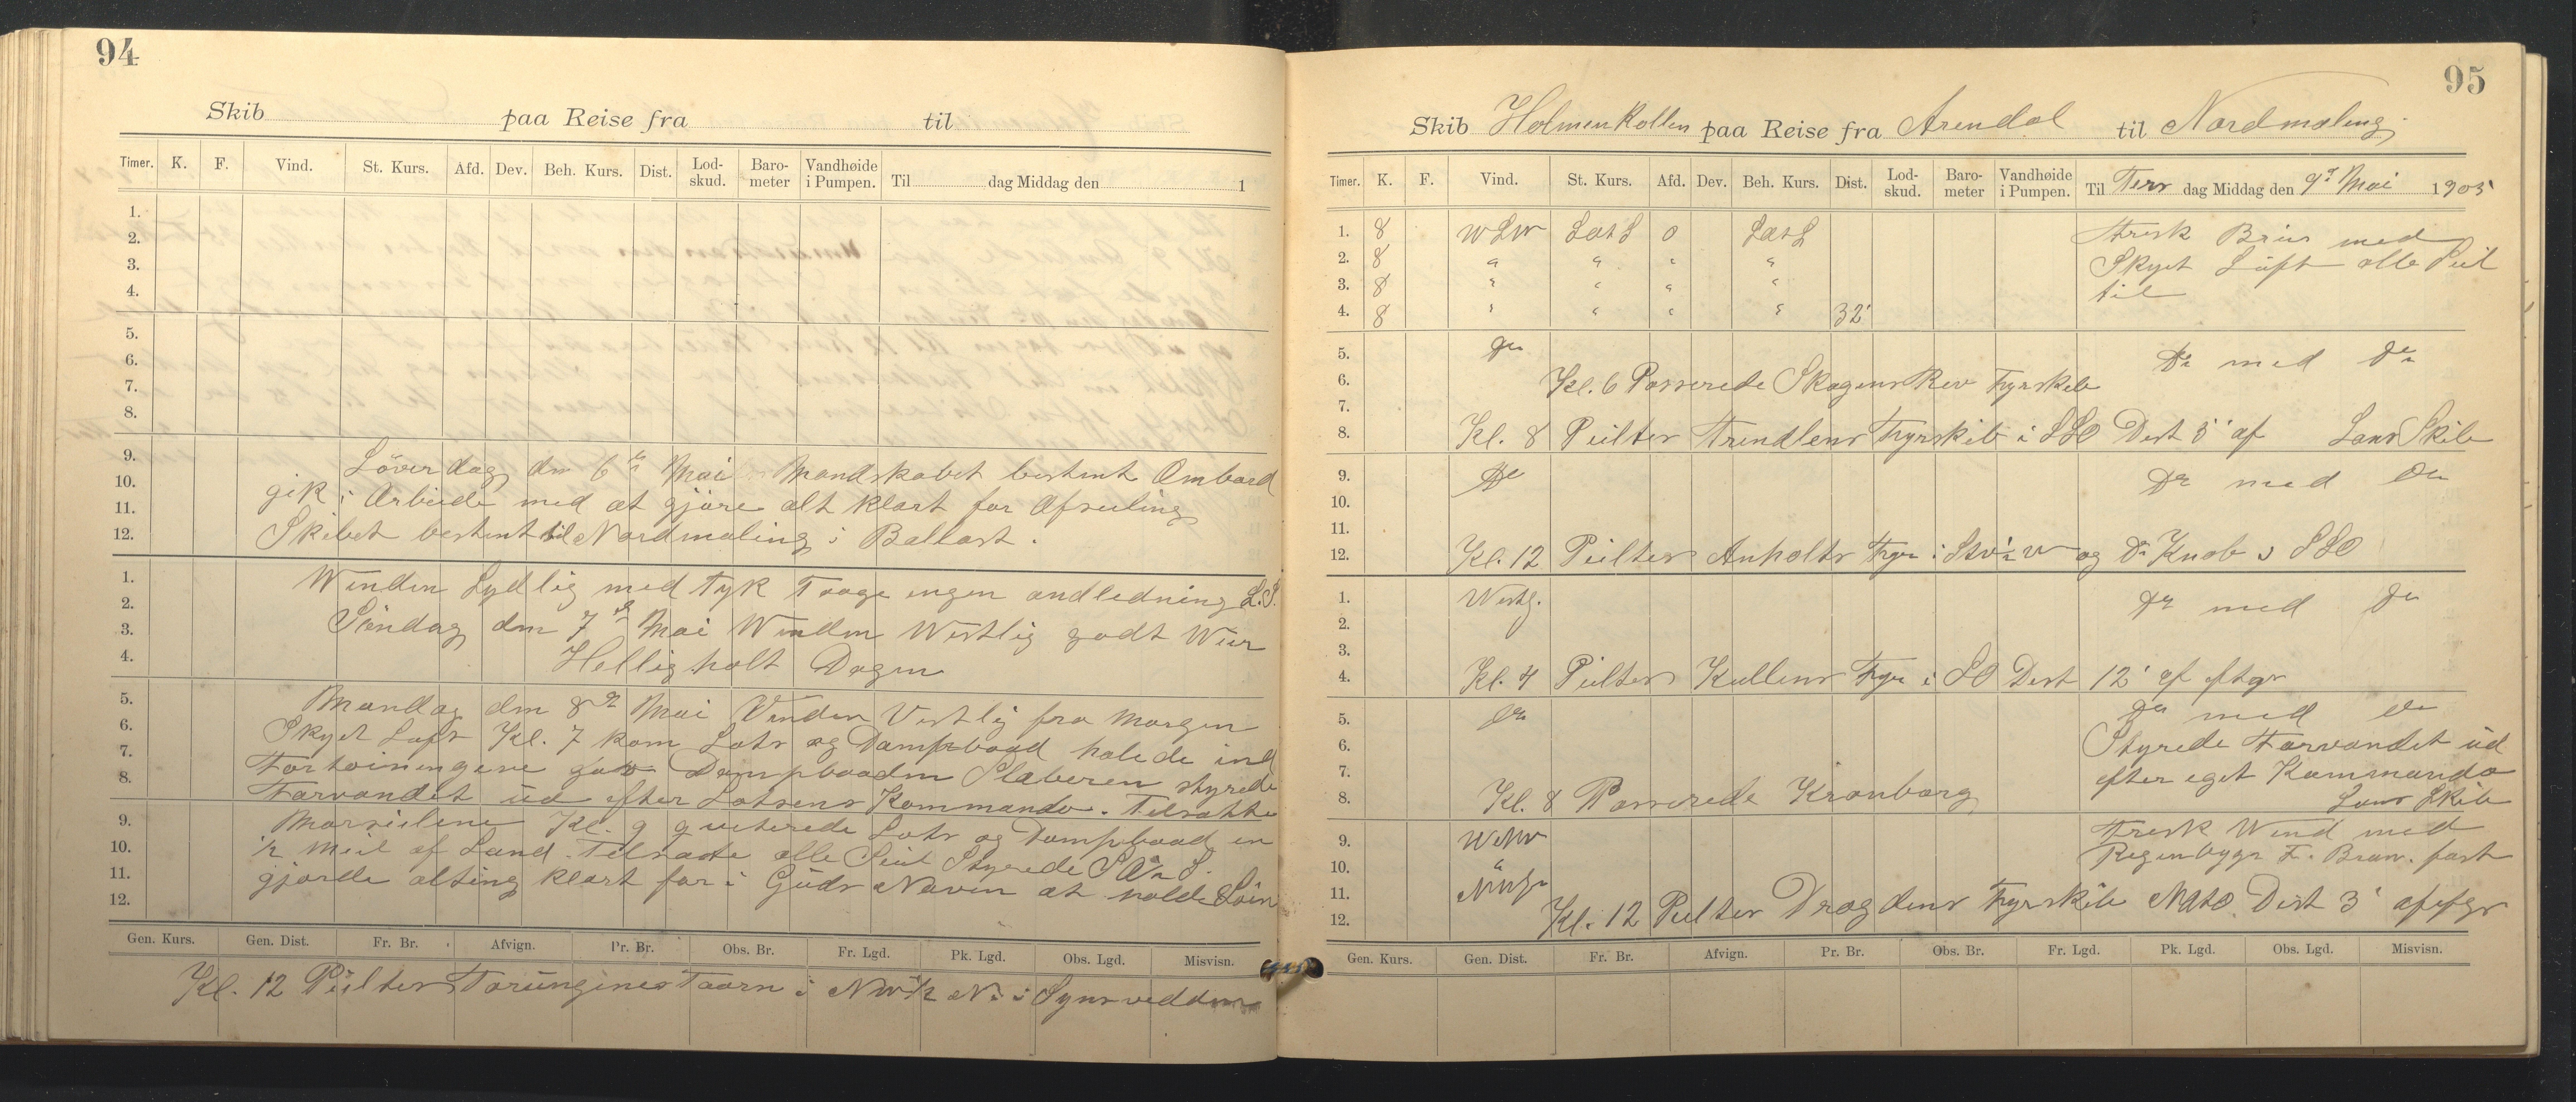 94
Skib paa Reise fra til
Timer. K. F. Vind. St. Kurs. Afd. Dev. Beh. Kurs. Dist. Lod-skud. Baro-meter Vandhøide i Pumpen. Til dag Middag den 1
1.
2.
3.
4.
5.
6.
7.
8.
9.
10.
11.
12.
Löverdag den 6te Mai Mandskabet bestemt Ombord
gik i Arbeide med at gjöre alt klart for Afseiling
Skibet bestemt til Nordmaling i Ballast.
1.
2.
3.
4.
Winden Sydlig med tyk Taage ingen andledning L.S.
Söndag den 7de Mai Winden Westlig godt Weir
Hellig holt Dagen
5.
6.
7.
8.
Mandag den 8de Mai Vinden Vestlig fra Morgen
Skyet Luft Kl. 7 kom Lots og Dampbaad halede ind
Fortöiningene gav Dampbaaden Slæberen styrede
Farvandet ud efter Lotsens Kommando. Tilsatte
9.
10.
11.
12.
Marsseilene Kl. 9 quiterede Lots og Dampbaad en
1/2 Meil af Land. Tilsatte alle Seil Styrede
gjorde alting klart for i Guds Navn at holde Söen
Gen. Kurs. Gen. Dist. Fr. Br. Afvign. Pr. Br. Obs. Br. Fr. Lgd. Pk. Lgd. Obs. Lgd. Misvisn.
Kl. 12 Peilter Torungenes Taarn i NW 1/2 N. i Synsvidden
95
Skib Holmenkollen paa Reise fra Arendal til Nordmaling
Timer. K. F. Vind. St. Kurs. Afd. Dev. Beh. Kurs. Dist. Lod-skud. Baro-meter Vandhøide i Pumpen. Til Tirs dag Middag den 9de Mai 1905
1. 8 WSW SOtS 0 SOtS Frisk Bris med
2. 8 " " " " Skyet Luft alle Seil
3. 8 " " " " til
4. 8 " " " " 32'
5. Do Do med Do
6. Kl. 6 Passerede Skagens Rev Fyrskib
7.
8. Kl. 8 Peilter Trindlens Fyrskib i SSO Dist 5' af Lans Skib
9. Do Do med Do
10.
11.
12. Kl. 12 Peilter Anholts Fyr i og Do Knob i SSO
1. Westl. Do med Do
2.
3.
4. Kl. 4 Peilter Kullens Fyr i SO Dist 12' af eftgr
5. Do Do med Do
6. Styrede Farvandet ud
7. efter eget Kommando
8. Kl. 8 Passerede Kronborg Lans Skib
9. WNW Frisk Wind med
10. " Regenbyger F. Bram. fast
11.
12. Kl. 12 Peilter Drogdens Fyrskib NOtO Dist 3' af efgr
Gen. Kurs. Gen. Dist. Fr. Br. Afvign. Pr. Br. Obs. Br. Fr. Lgd. Pk. Lgd. Obs. Lgd. Misvisn.